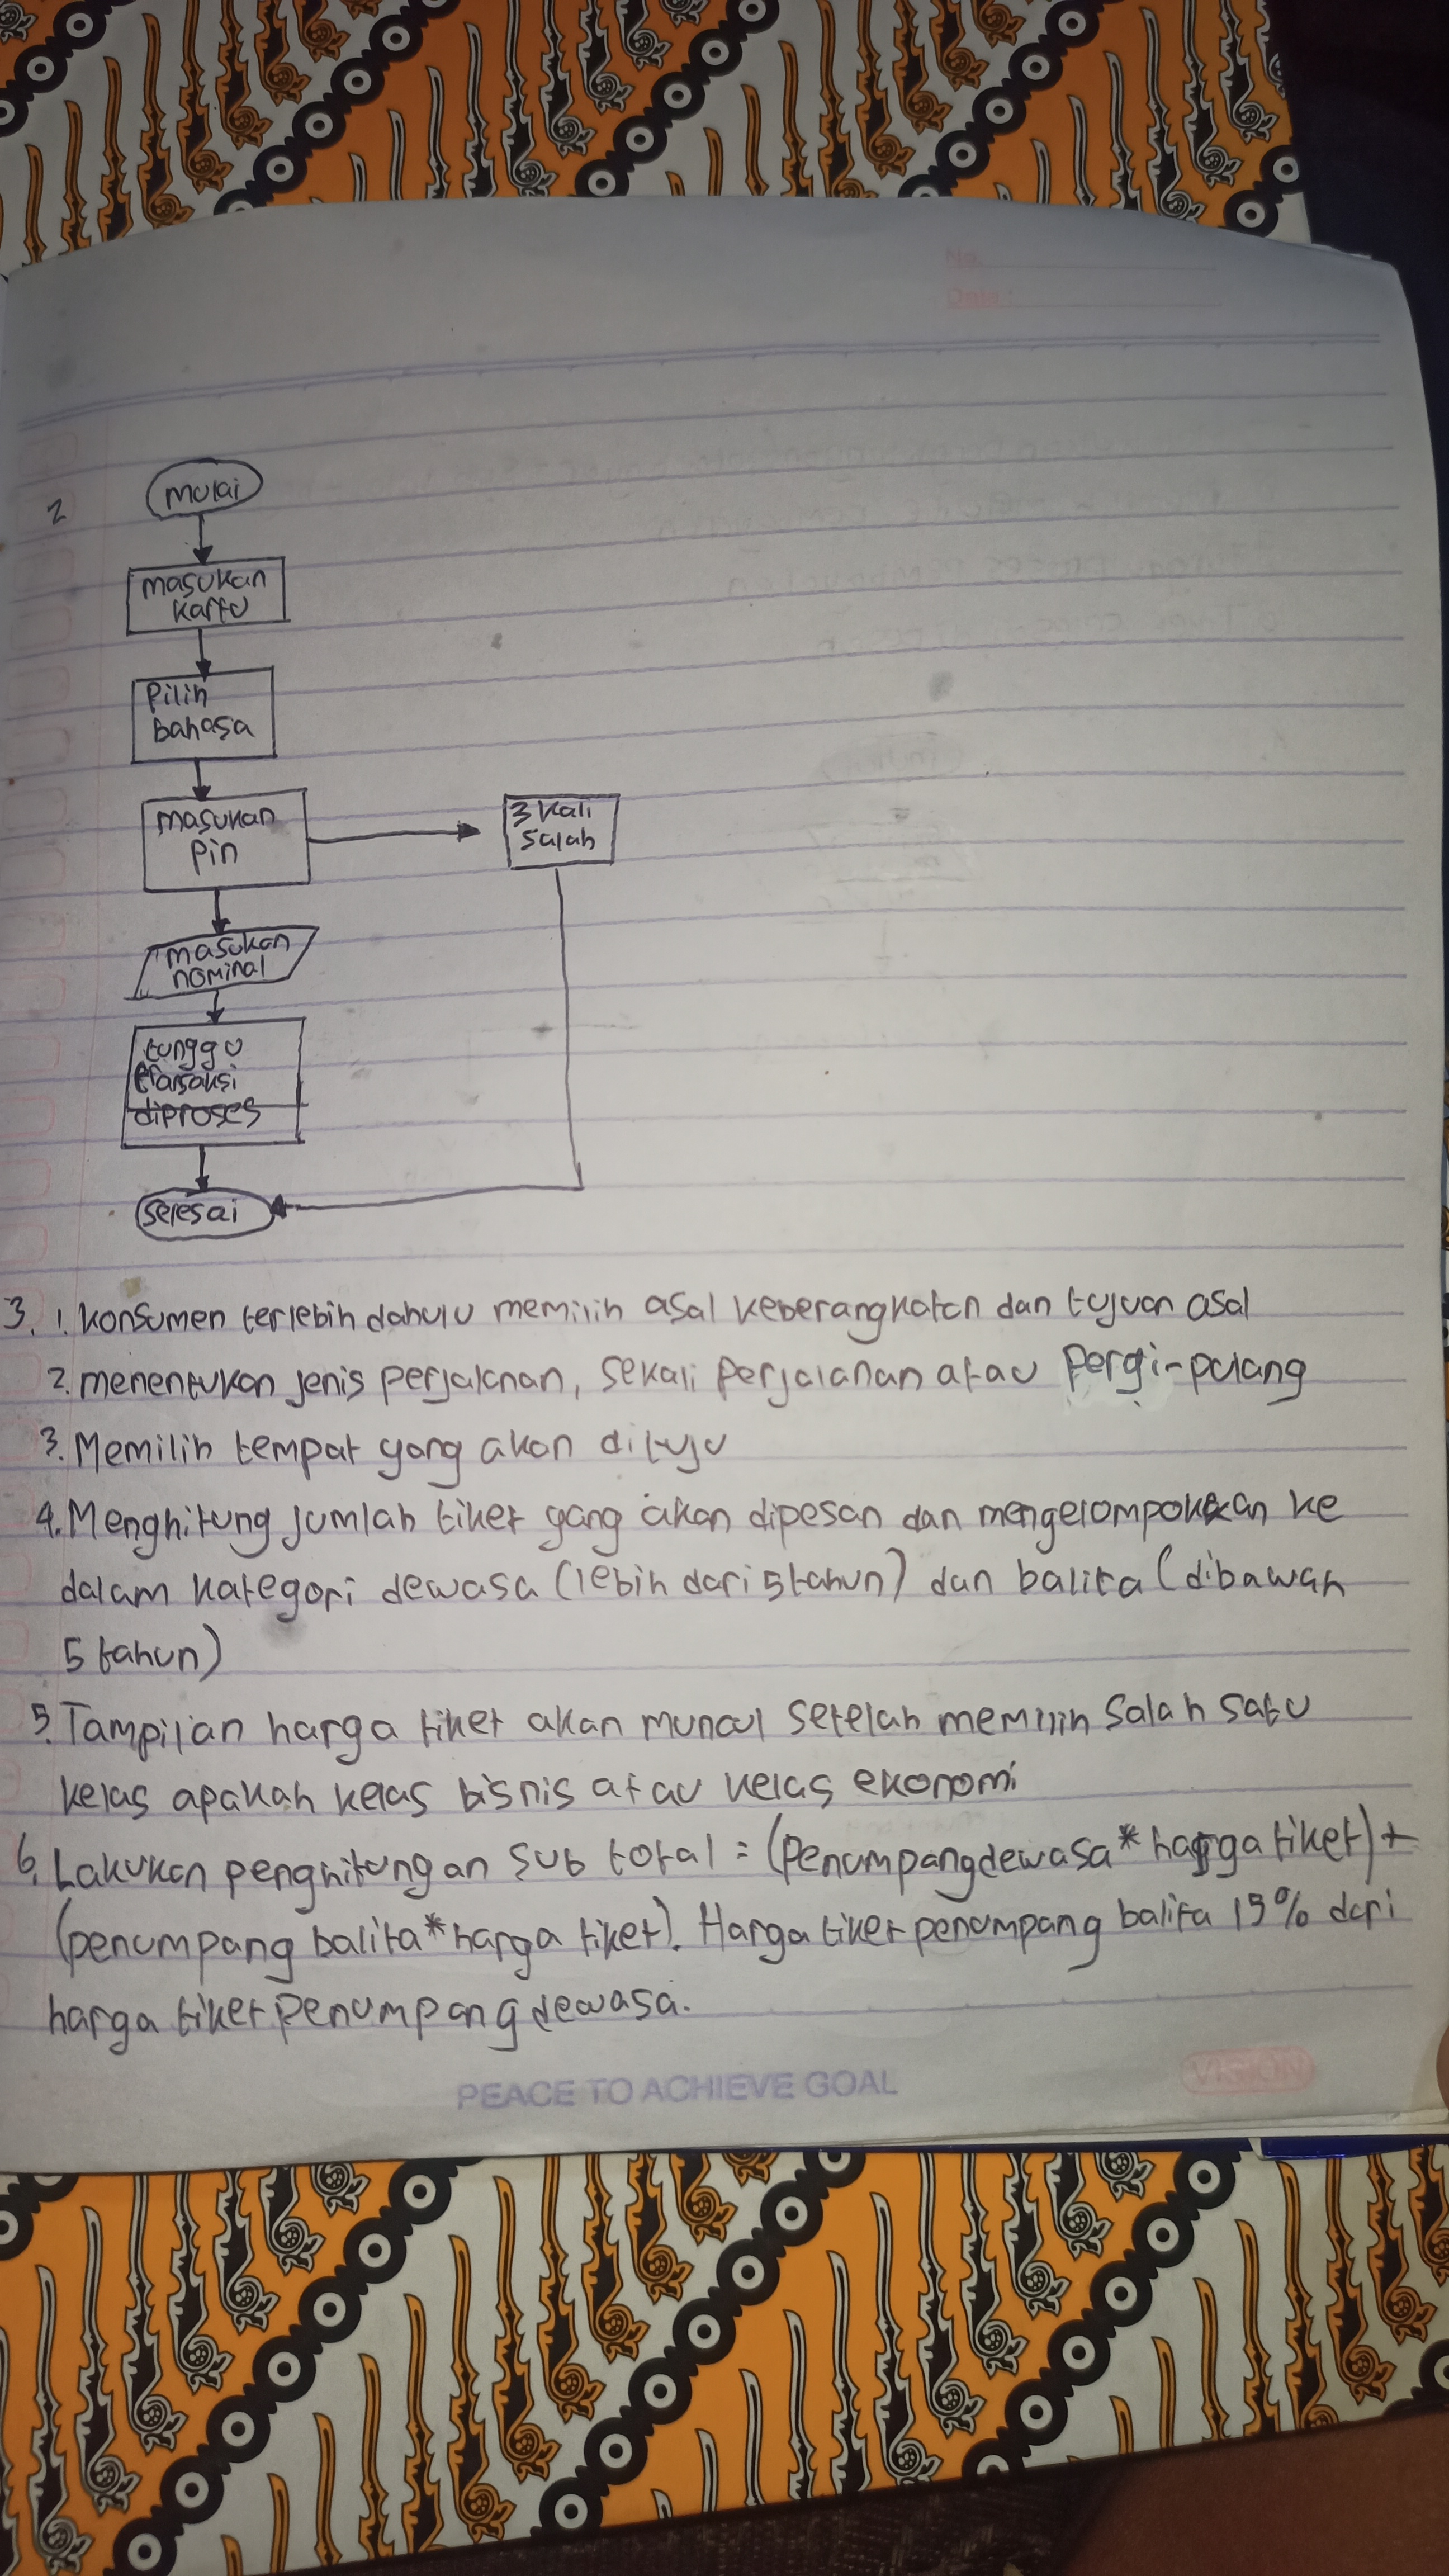 No.
Date :
2
mulai
masukan
kartu
Pilih
bahasa
masukan
pin
3 kali
salah
masukan
nominal
tunggu
diproses
selesai
3. 1. konsumen terlebih dahulu memilih asal keberangkatan dan tujuan asal
2. menentukan jenis perjalanan, sekali perjalanan atau pergi-pulang
3. Memilih tempat yang akan dituju
4. Menghitung jumlah tiket yang akan dipesan dan mengelompokkan ke
dalam kategori dewasa (lebih dari 5 tahun) dan balita (dibawah
5 tahun)
5. Tampilan harga tiket akan muncul setelah memilih salah satu
kelas apakah kelas bisnis atau kelas ekonomi
6. Lakukan penghitungan sub total = (Penumpang dewasa * harga tiket) +
(penumpang balita * harga tiket). Harga tiket penumpang balita 15% dari
harga tiket penumpang dewasa.
PEACE TO ACHIEVE GOAL
VISION